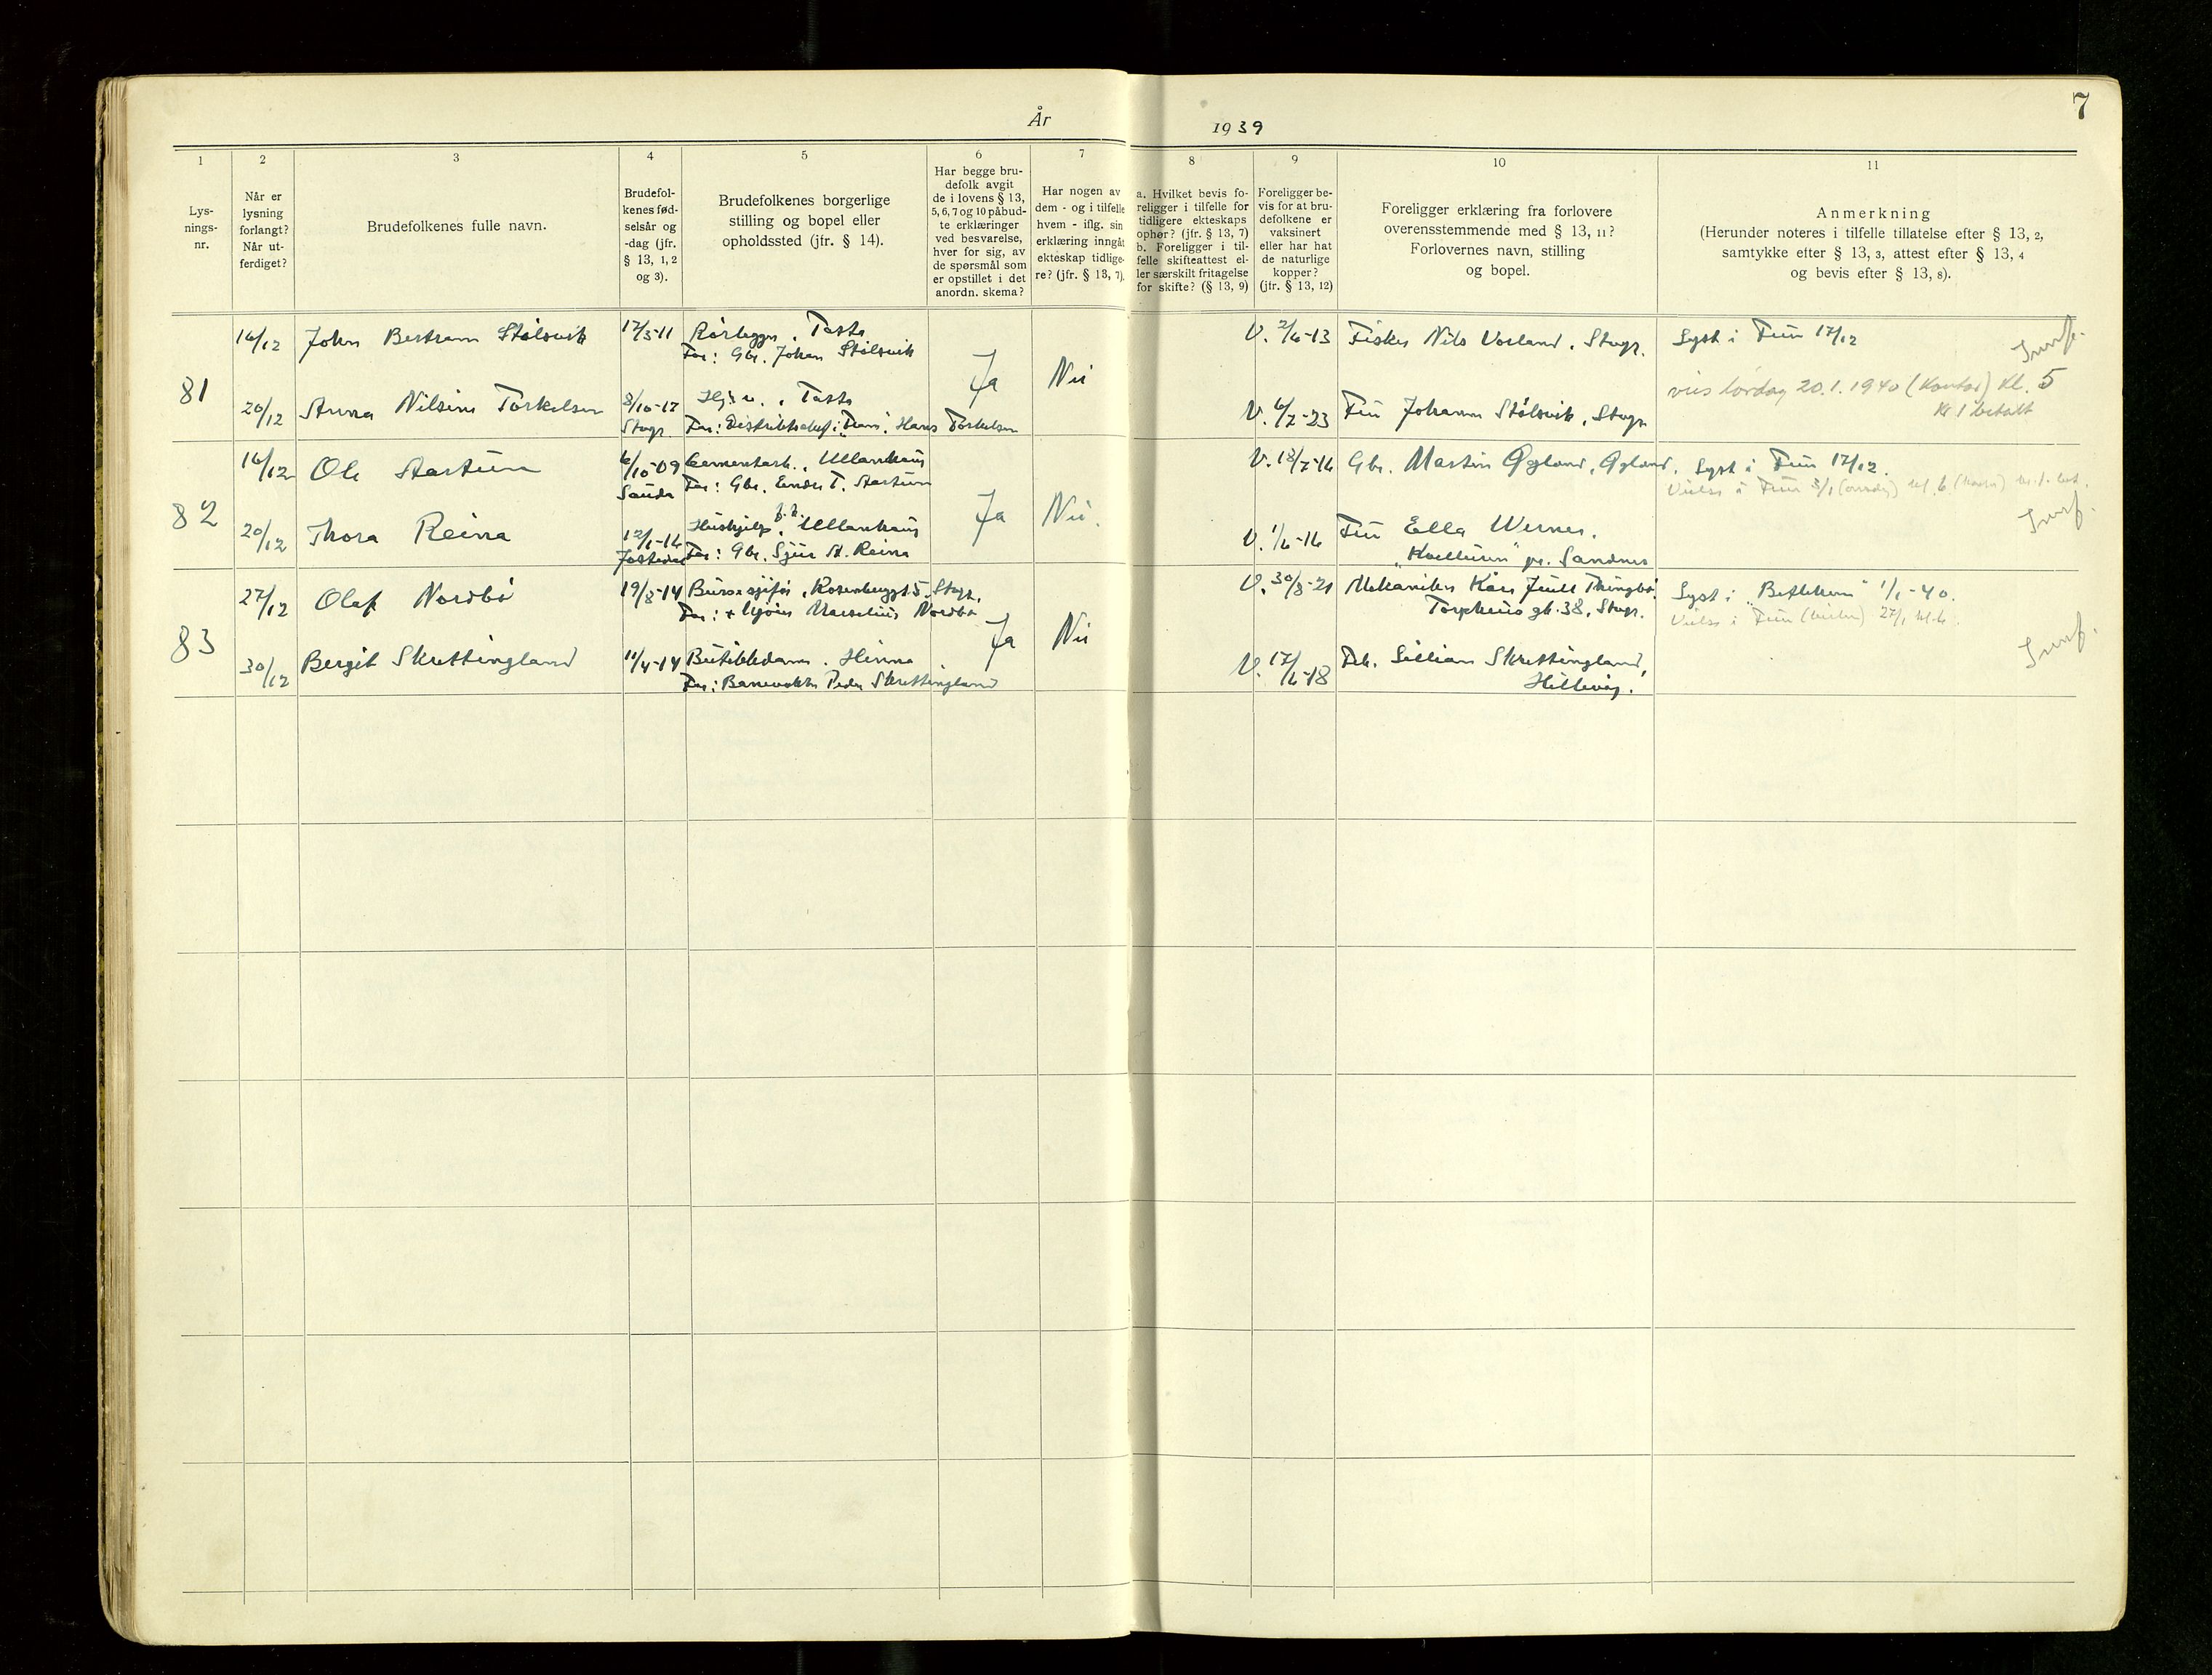 7
År
1939
1
2
3
4
5
6
7
8
9
10
11
Lys-
nings-
nr.
Når er
lysning
forlangt?
Når ut-
ferdiget?
Brudefolkenes fulle navn.
Brudefol-
kenes fød-
selsår og
-dag (jfr.
§ 13, 1, 2
og 3).
Brudefolkenes borgerlige
stilling og bopel eller
opholdssted (jfr. § 14).
Har begge bru-
defolk avgit
de i lovens § 13,
5, 6, 7 og 10 påbud-
te erklæringer
ved besvarelse,
hver for sig, av
de spørsmål som
er opstillet i det
anordn. skema?
Har nogen av
dem - og i tilfelle
hvem - iflg. sin
erklæring inngåt
ekteskap tidlige-
re? (jfr. § 13, 7).
a. Hvilket bevis fo-
religger i tilfelle for
tidligere ekteskaps
ophør? (jfr. § 13, 7)
b. Foreligger i til-
felle skifteattest el-
ler særskilt fritagelse
for skifte? (§ 13, 9)
Foreligger be-
vis for at bru-
defolkene er
vaksinert
eller har hat
de naturlige
kopper?
(jfr. § 13, 12)
Foreligger erklæring fra forlovere
overensstemmende med § 13, 11?
Forlovernes navn, stilling
og bopel.
Anmerkning
(Herunder noteres i tilfelle tillatelse efter § 13, 2,
samtykke efter § 13, 3, attest efter § 13, 4
og bevis efter § 13, 8).
81
16/12
John Bertram Stølsvik
17/3-11
Rørlegger, Tasta
Far: Gbr. Johan Stølsvik
Ja
Nei
V. 2/6-13
Fisker Nils Vorland, Stvgr.
Lyst i Frue 17/12
20/12
Anna Nilsine Torkelsen
8/10-17
Stvgr.
Tasta
Far: Distriktschef i "Fram", Hans Torkelsen
V. 6/7-23
Fru Johanne Stølsvik, Stvgr.
vies lørdag 20.1.1940 (Kontor) Kl. 5
Kr. 1 betalt
82
16/12
Ole Sartun
6/10-09
Sauda
Cementarb., Ullanhaug
Far: Gbr. Endre T. Sartun
Ja
Nei.
V. 18/7-16
Gbr. Martin Øgland, Øgland.
Lyst i Frue 17/12.
Vielse i Frue 3/1 (onsdag) kl. 6
20/12
Thora Reina
12/1-16
Jostedal
Hushjelp f.t. Ullanhaug
Far: Gbr. Sjur A. Reina
V. 1/6-16
Fru Ella Wernes.
"Kvellurin" pr. Sandnes
83
27/12
Olaf Nordbø
19/8-14
Rosenberggt. 5, Stvgr.
Far: + Marselius Nordbø
Ja
Nei
V. 30/8-21
Mekaniker Kåre Juell Thingbø,
Torpheus gt. 38, Stvgr.
Lyst i "Betlehem" 1/1-40.
Vielse i Frue 27/1 kl. 6.
30/12
Bergit Skrettingland
11/4-14
Butikkdame, Hinna
Far: Banevokter Peder Skrettingland
V. 17/6-18
Frk. Lillian Skrettingland,
Hillevåg.